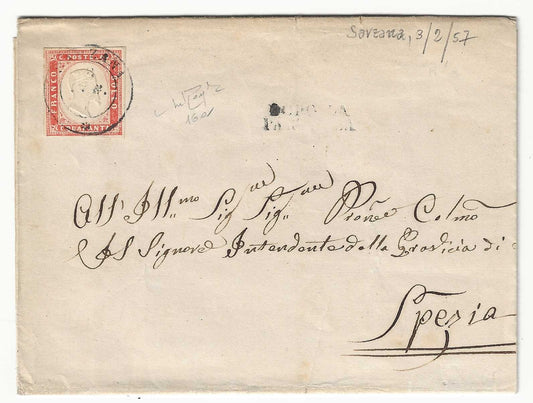 Sarzana, 3/2/57
C. POSTE
FRANCO
BOLLO
C. QUARANTA
All' Ill.mo Sig Sig. Prone Colmo
Il Signore Intendente della Provicia di
Spezia